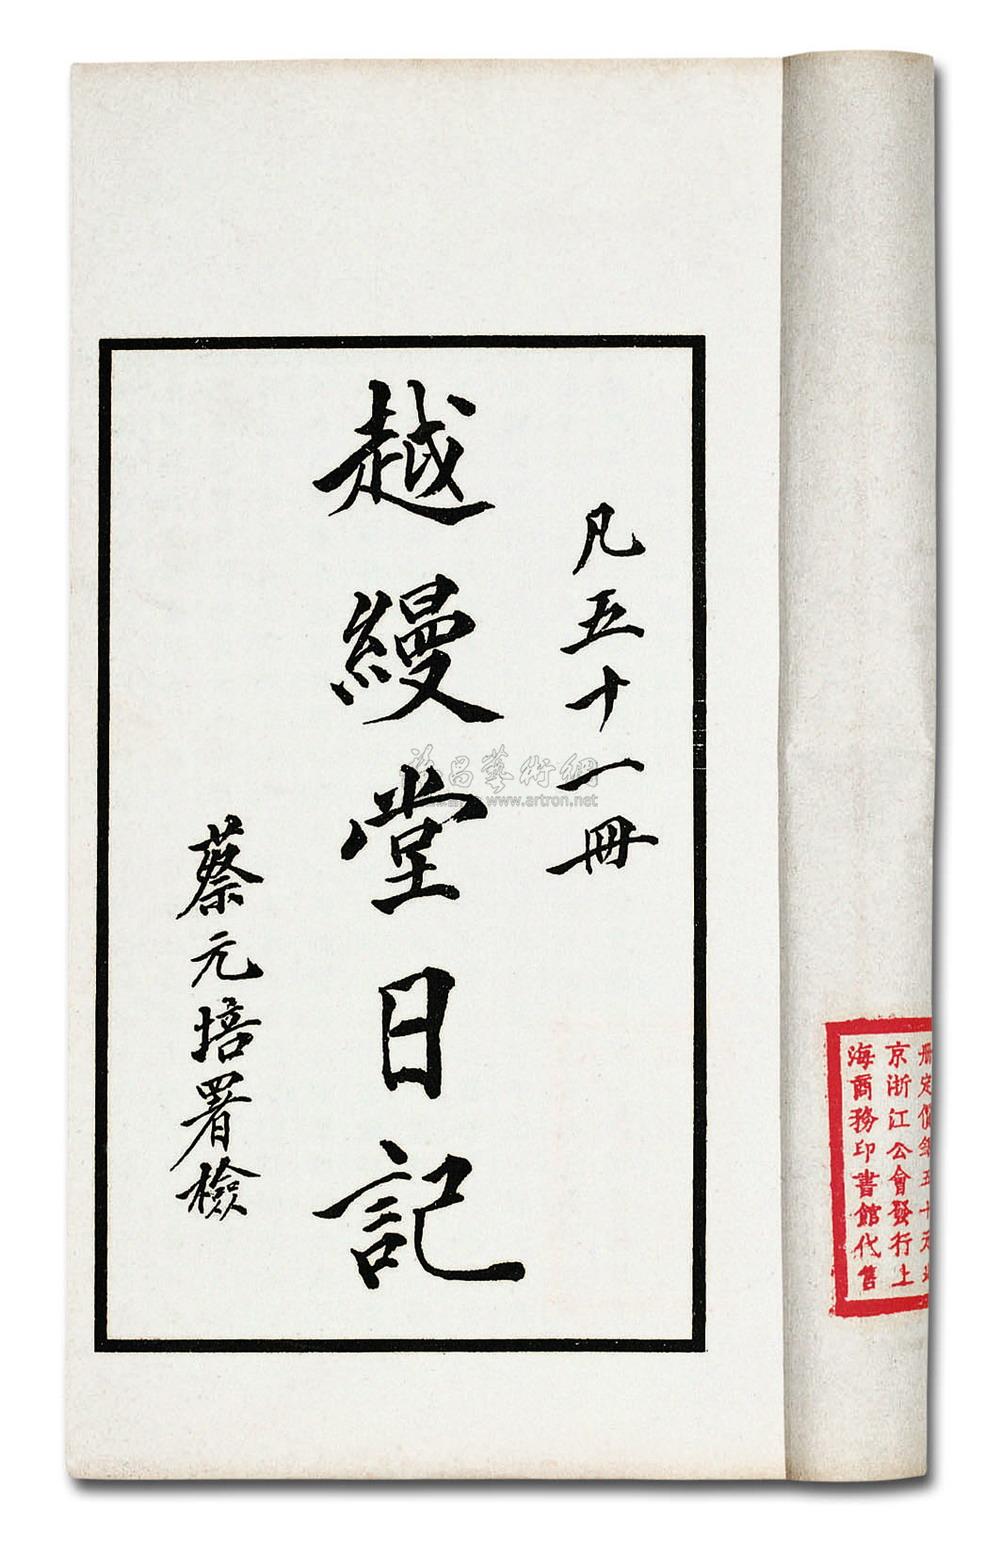 凡五十一冊
越縵堂日記
蔡元培署檢
冊定價銀五十元北
京浙江公會發行上
海商務印書館代售
益昌藝術網
www.artron.net